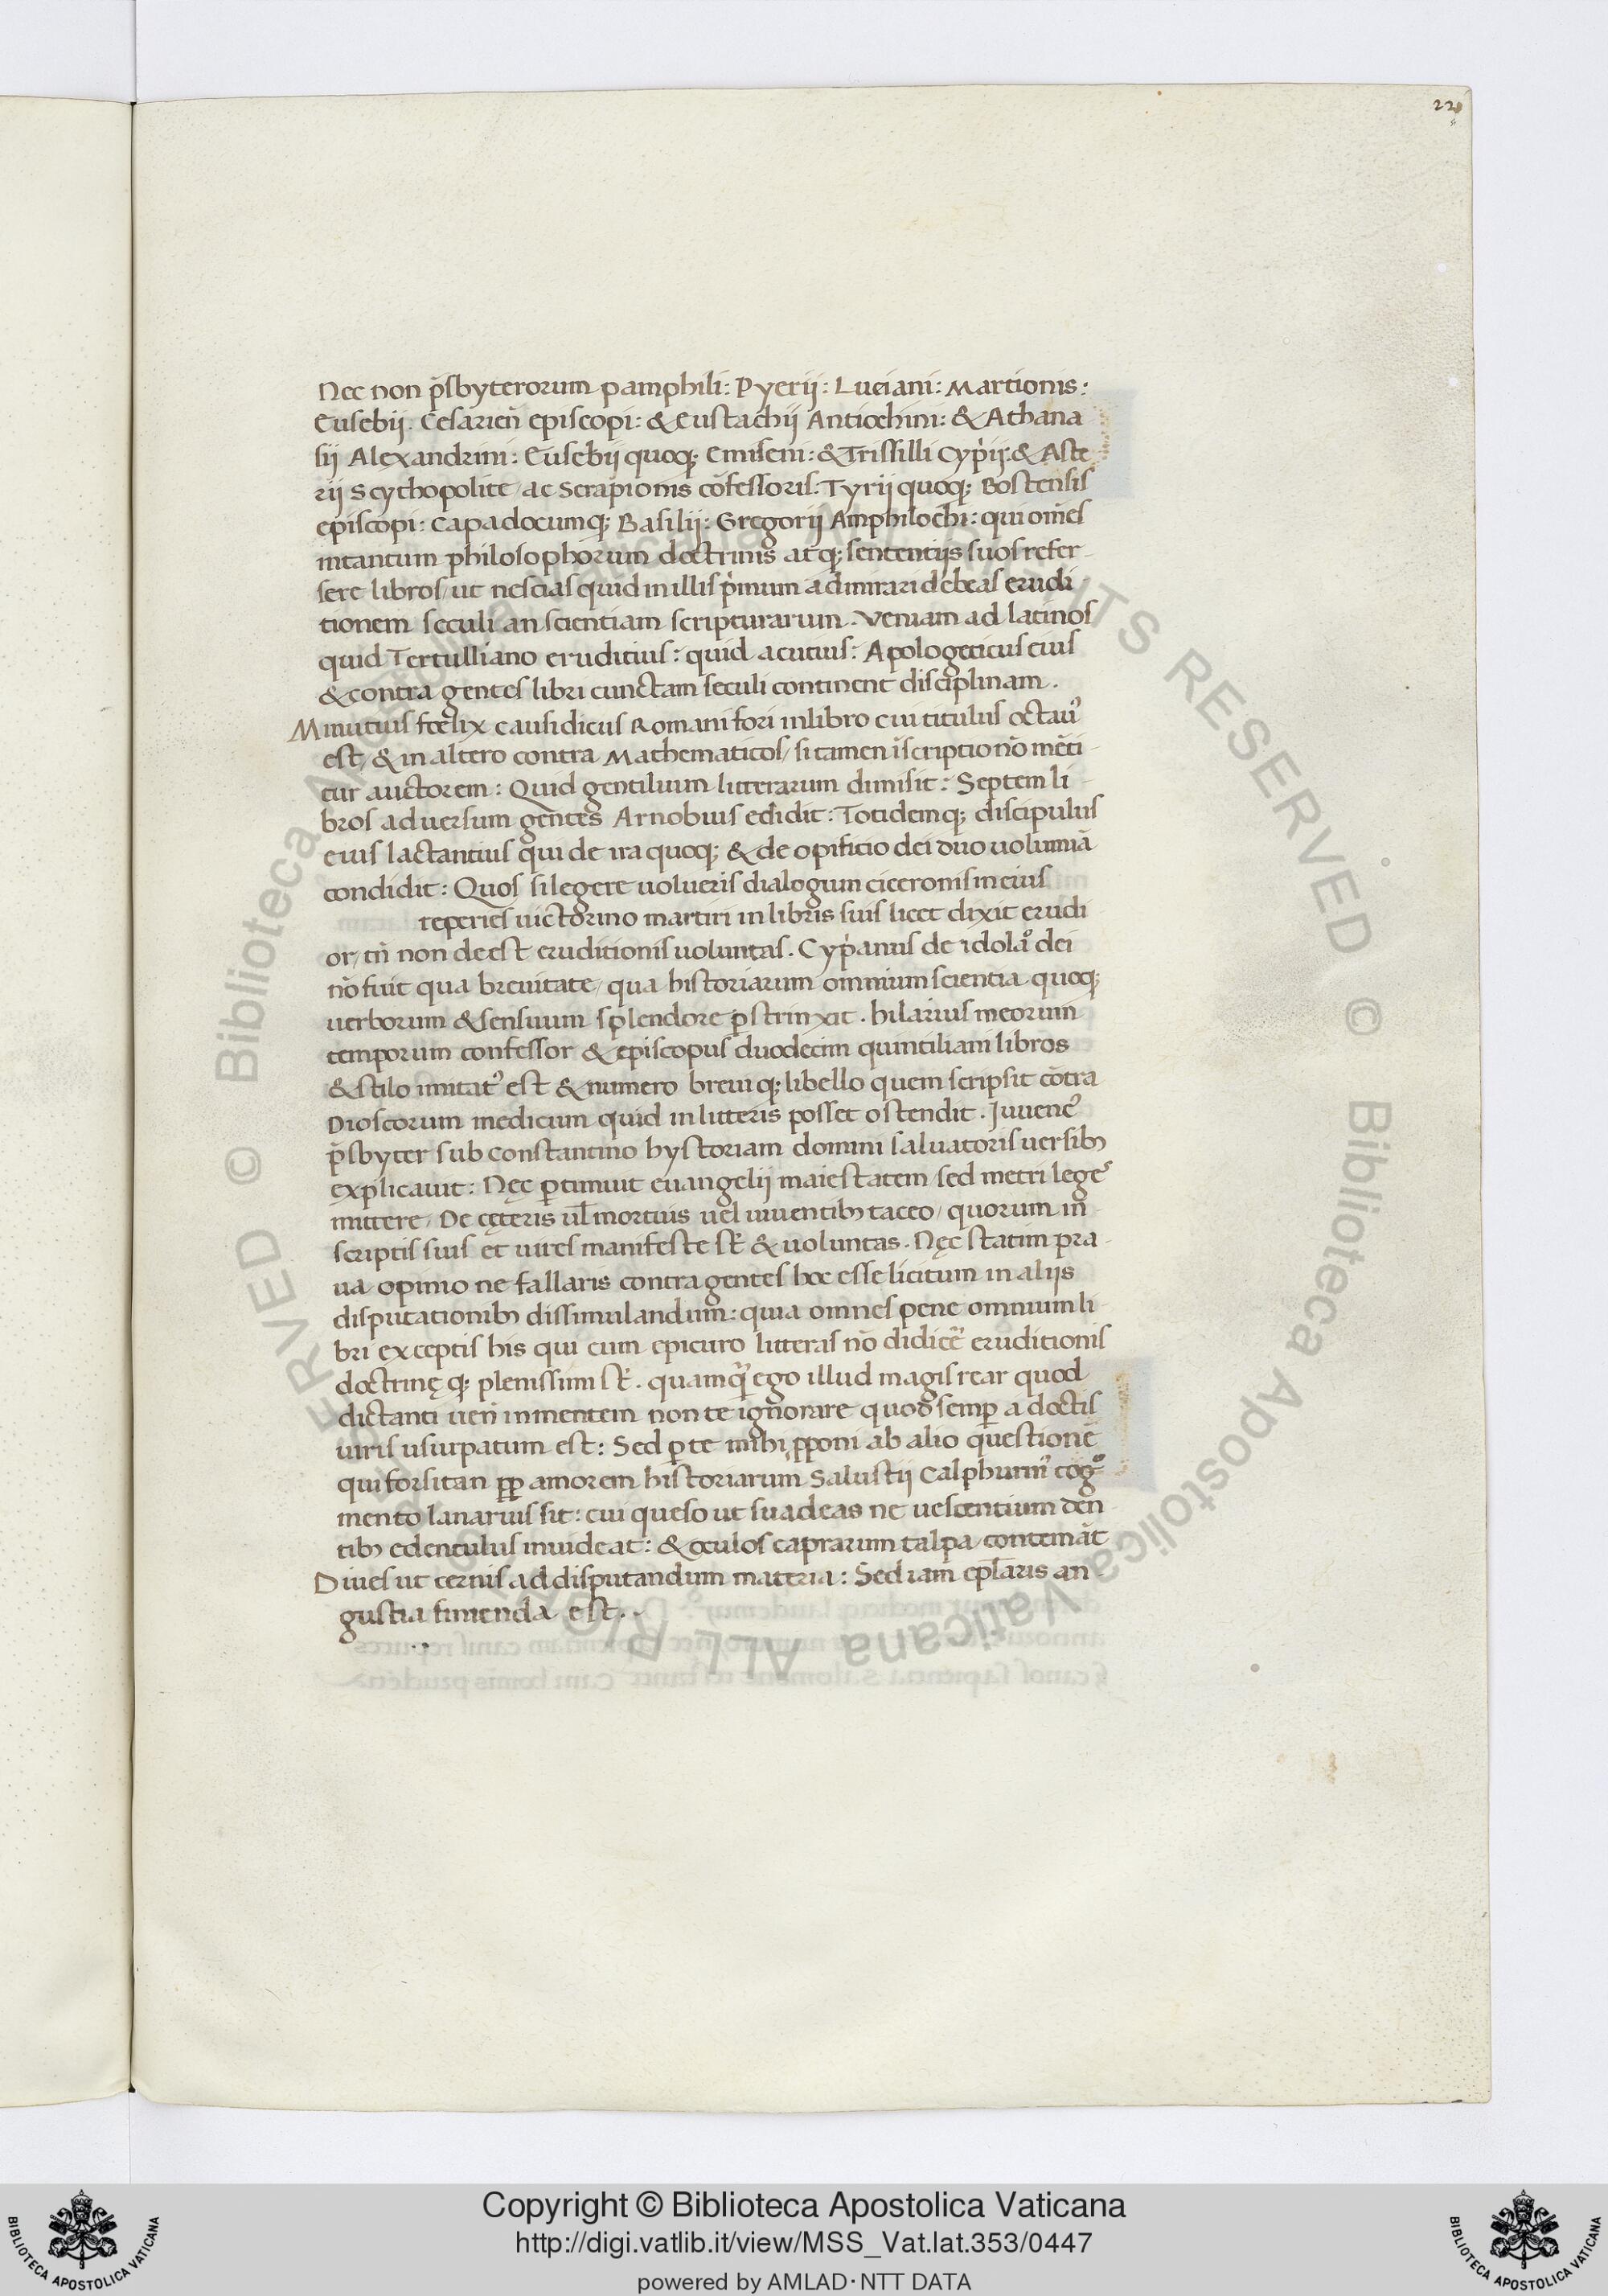 220
Nec non p̄sbyterorum pamphili: Pyerij: Luciani: Martionis:
Eusebij. Cesarien̄ episcopi: & Eustachij Antiochini: & Athana
sii Alexandrini: Eusebij quoq; Emiseni: & Trissilli Cyp̄ij: & Aste
rij Scythopolite ac Serapionis cōfessoris: Tyrij quoq; Bostensis
episcopi: Capadocumq; Basilij: Gregorij Amphilochi: qui om̄es
intantum philosophorum doctrinis atq; sententijs suos refer
sere libros, ut nescias quid in illis p̄mum admirari debeas erudi
tionem seculi an scientiam scripturarum. Veniam ad latinos
quid Tertulliano eruditius: quid acutius: Apologeticus eius
& contra gentes libri cunctam seculi continent disciplinam.
Minutius foelix causidicus Romani fori in libro cui titulus octaui᾽
est, & in altero contra Mathematicos, si tamen īscriptio nō mēti
tur auctorem: Quid gentilium litterarum dimisit: Septem li
bros aduersum gentes Arnobius edidit: Totidemq; discipulus
eius lactantius qui de ira quoq; & de opificio dei duo uolumiā
condidit: Quos si legere uolueris dialogum ciceronis in eius
reperies uictorino martiri in libris suis licet dixit erudi
or, tn̄ non deest eruditionis uoluntas. Cyp̄anus de idolaᷣ dei
nō fuit qua breuitate, qua historiarum omnium scientia quoq;
uerborum & sensuum splendore p̄strinxit. hilarius meorum
temporum confessor & episcopus duodecim quintiliani libros
& stilo imitat᾽ est & numero breuiq; libello quem scripsit cōtra
Dioscorum medicum quid in litteris posset ostendit. Juuene᾽
p̄sbyter sub constantino hystoriam domini saluatoris uersib;
explicauit: Nęc ptimuit euangelij maiestatem sed metri lege᾽
mittere, De cęteris ul̄ mortuis uel uiuentib; taceo, quorum in
scriptis suis et uires manifeste st̄ & uoluntas. Nęc statim pra
ua opinio ne fallaris contra gentes hoc esse licitum in alijs
disputationib; dissimulandum: quia omnes pene omnium li
bri exceptis his qui cum epicuro litteras nō didicer̄ eruditionis
doctrinę q; plenissimi st̄. quamq̄ ego illud magis rear quod
dictanti uen̄ in mentem non te ignorare quod semp a doctis
uiris usurpatum est: Sed p te mihi pponi ab alio questionē
qui forsitan pp amorem historiarum Salustij Calphurni᾽ cogᷣ
mento lanarius sit: cui queso ut suadeas ne uescentium den
tib; edentulus inuideat: & oculos caprarum talpa contemāt
Diues ut cernis ad disputandum materia: Sed iam epl̄aris an
gustia finienda est.
© Biblioteca Apostolica Vaticana ALL RIGHTS RESERVED
Copyright © Biblioteca Apostolica Vaticana
http://digi.vatlib.it/view/MSS_Vat.lat.353/0447
powered by AMLAD·NTT DATA
BIBLIOTECA APOSTOLICA VATICANA
BIBLIOTECA APOSTOLICA VATICANA